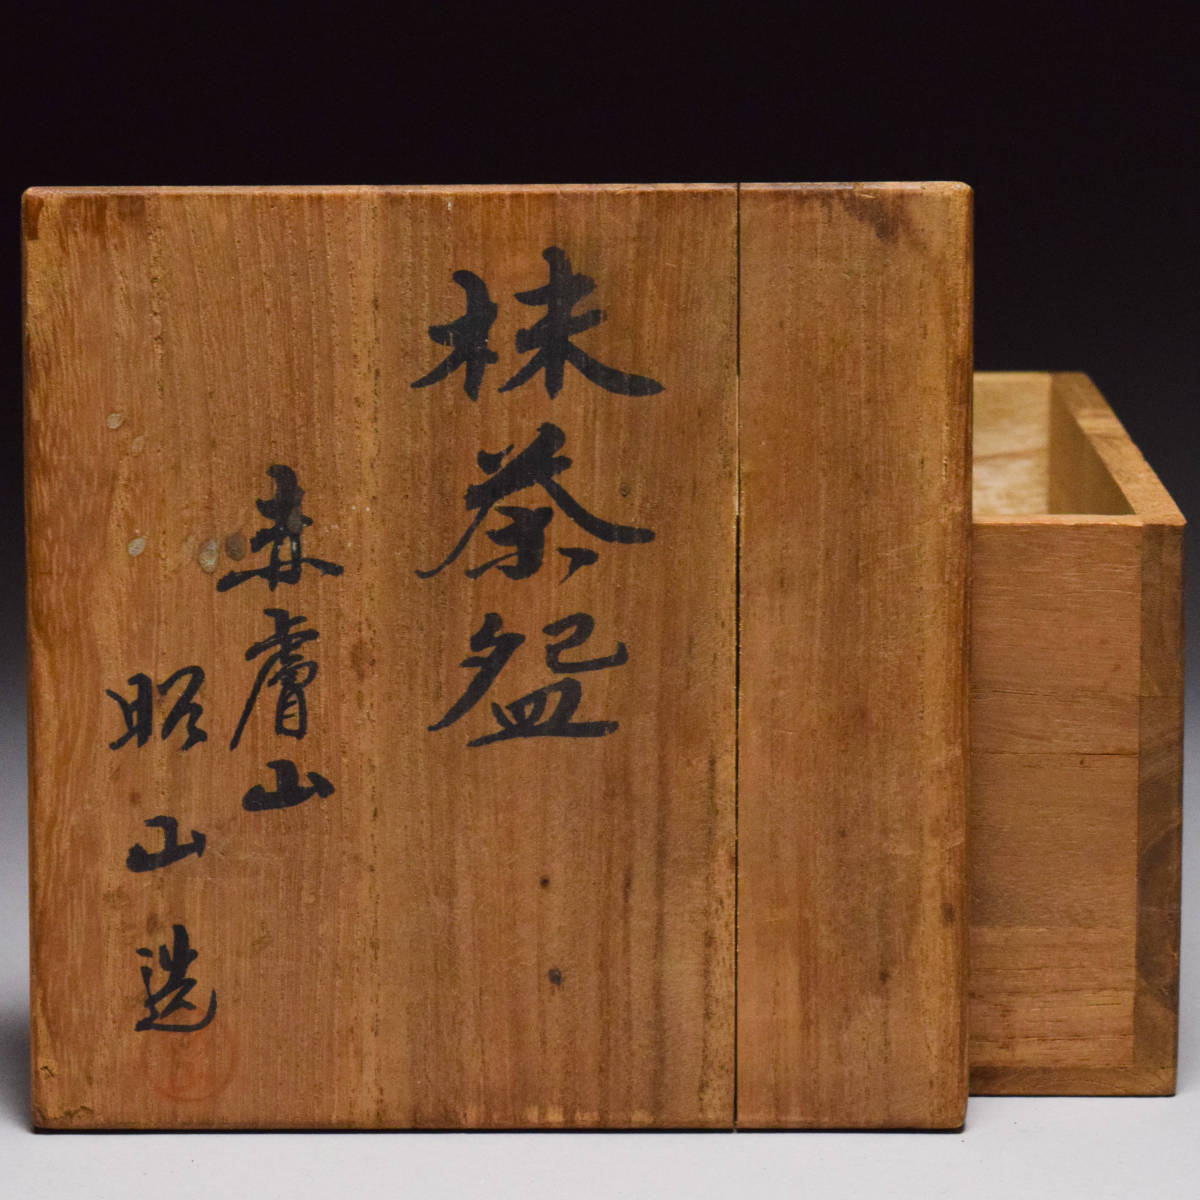 抹茶盌
赤膚山
昭山造